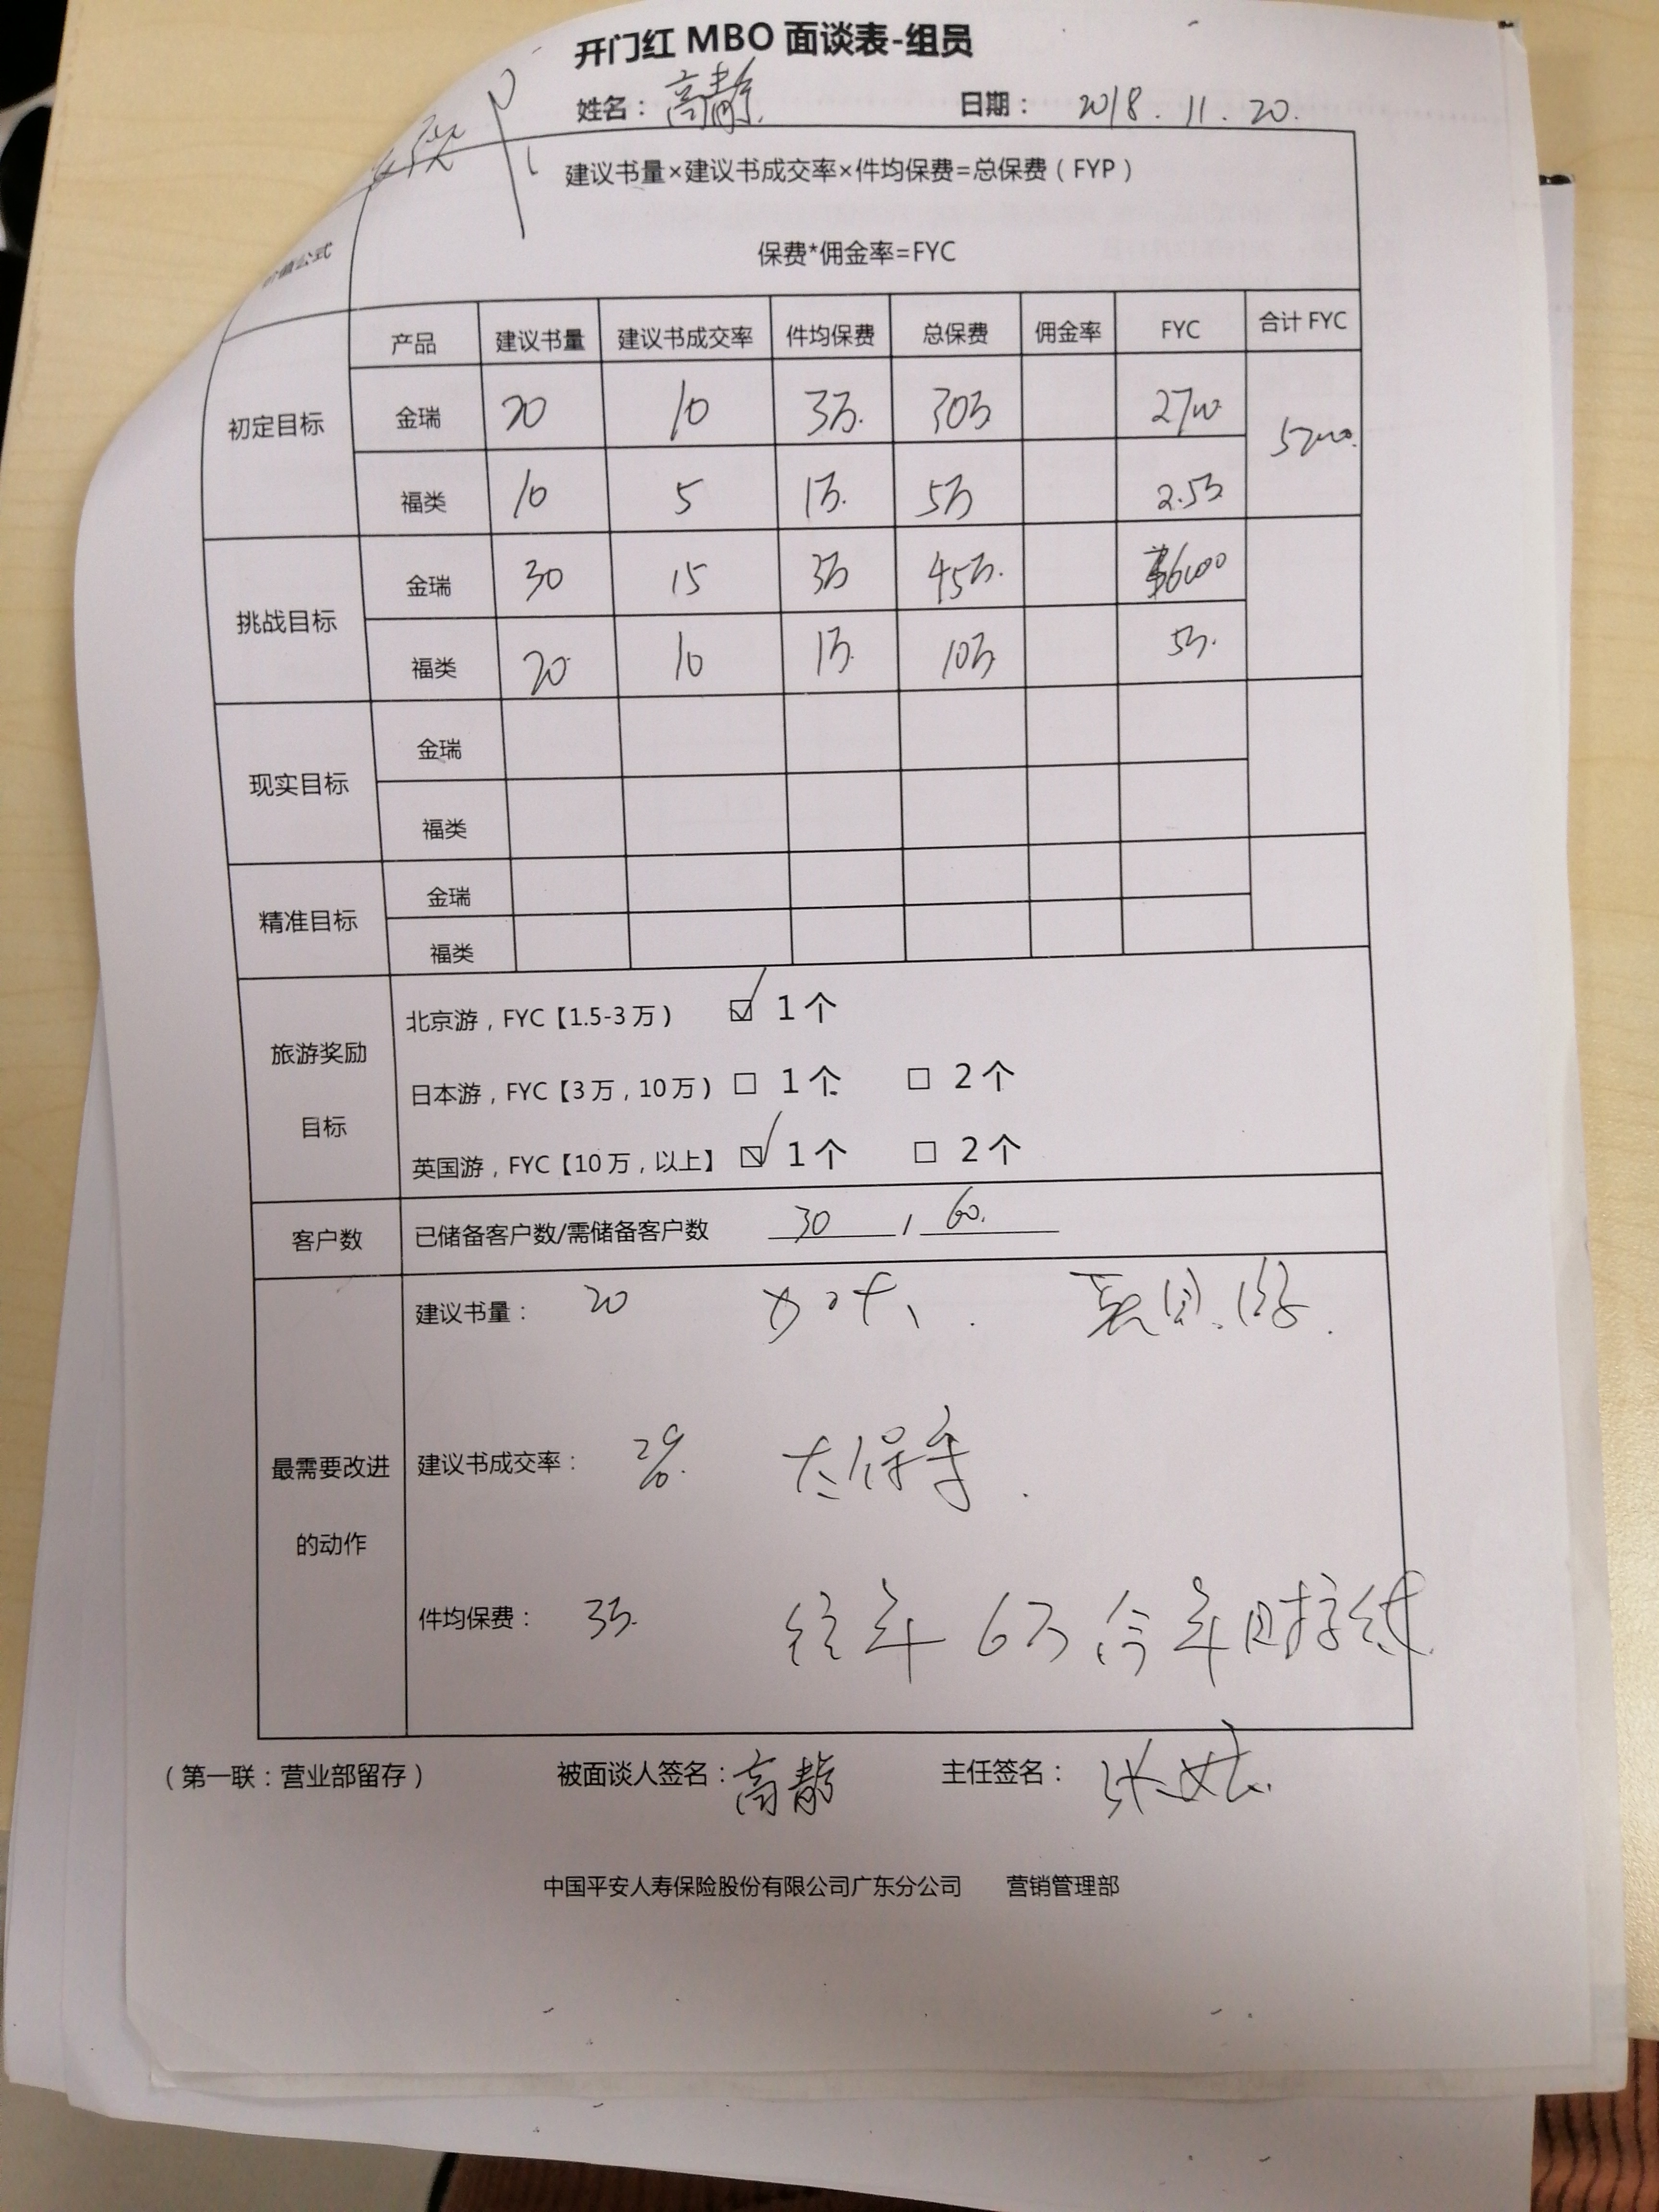 开门红 MBO 面谈表-组员
姓名：高静 日期： 2018.11.20.
价值公式
建议书量×建议书成交率×件均保费=总保费（FYP）
保费*佣金率=FYC
产品 建议书量 建议书成交率 件均保费 总保费 佣金率 FYC 合计 FYC
初定目标
金瑞 20 10 3万. 30万
福类 10 5 1万. 5万 2.5万
挑战目标
金瑞 30 15 3万 45万.
福类 20 10 1万. 10万 5万.
现实目标
金瑞
福类
精准目标
金瑞
福类
旅游奖励
目标
北京游，FYC【1.5-3 万） ☑ 1 个
日本游，FYC【3 万，10 万） □ 1 个 □ 2 个
英国游，FYC【10 万，以上】 ☑ 1 个 □ 2 个
客户数 已储备客户数/需储备客户数 30 / 60.
最需要改进
的动作
建议书量： 20 加大. 英国游.
建议书成交率： 太保守.
件均保费： 3万. 往年 6万 今年 持续
（第一联：营业部留存） 被面谈人签名：高静 主任签名：
中国平安人寿保险股份有限公司广东分公司 营销管理部